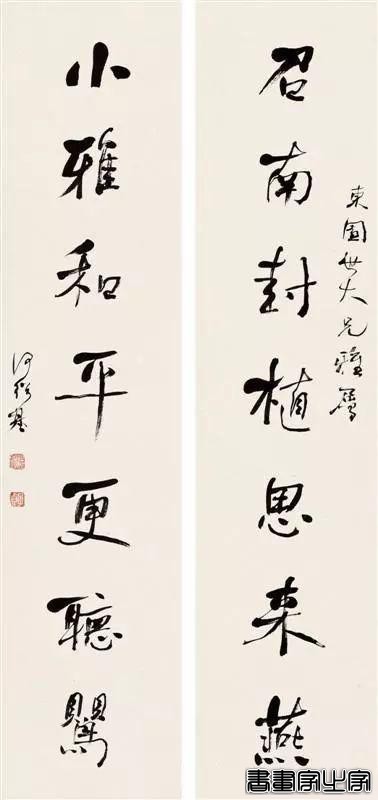 東園世大兄雅屬
召南封植思来燕
小雅和平更聽鸎
何紹基
書畫字之字